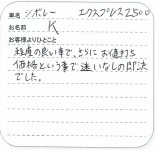 車名 シボレー エクスプレス2500
お名前 K
お客様よりひとこと
程度の良い車で、さらにお値打ち
価格という事で迷いなしの即決
でした。